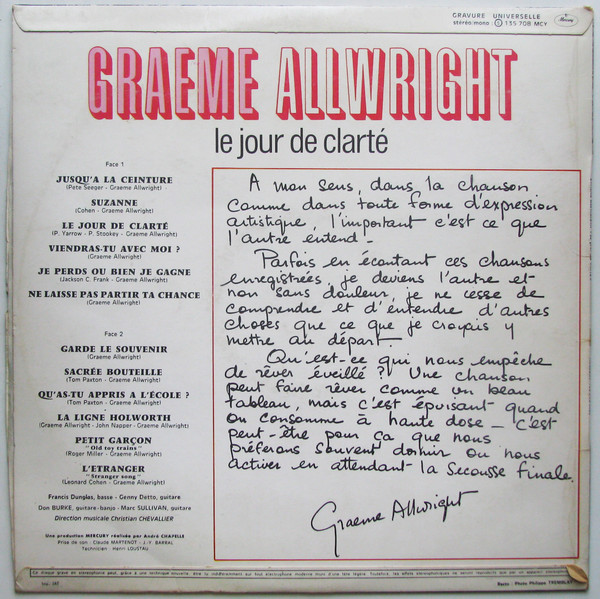 GRAVURE UNIVERSELLE
stéréo/mono 135 708 MCY
GRAEME ALLWRIGHT
le jour de clarté
Face 1
JUSQU'A LA CEINTURE
(Pete Seeger - Graeme Allwright)
SUZANNE
(Cohen - Graeme Allwright)
LE JOUR DE CLARTÉ
(P. Yarrow - P. Stookey - Graeme Allwright)
VIENDRAS-TU AVEC MOI ?
(Graeme Allwright)
JE PERDS OU BIEN JE GAGNE
(Jackson C. Frank - Graeme Allwright)
NE LAISSE PAS PARTIR TA CHANCE
(Graeme Allwright)
Face 2
GARDE LE SOUVENIR
(Graeme Allwright)
SACRÉE BOUTEILLE
(Tom Paxton - Graeme Allwright)
QU'AS-TU APPRIS A L'ÉCOLE ?
(Tom Paxton - Graeme Allwright)
LA LIGNE HOLWORTH
(Graeme Allwright - John Napper - Graeme Allwright)
PETIT GARÇON
"Old toy trains"
(Roger Miller - Graeme Allwright)
L'ETRANGER
"Stranger song"
(Leonard Cohen - Graeme Allwright)
Francis Dunglas, basse - Genny Detto, guitare
Don BURKE, guitare-banjo - Marc SULLIVAN, guitare
Direction musicale Christian CHEVALLIER
Une production MERCURY réalisée par André CHAPELLE
Prise de son : Claude MARTENOT - J.-Y. BARRAL
Technicien : Henri LOUSTAU
A mon sens, dans la chanson
comme dans toute forme d'expression
artistique, l'important c'est ce que
l'autre entend -
Parfois en écoutant ces chansons
enregistrées, je deviens l'autre et
non sans douleur, je ne cesse de
comprendre et d'entendre d'autres
choses que ce que je croyais y
mettre au départ.
Qu'est-ce qui nous empêche
de rêver éveillé ? Une chanson
peut faire rêver comme un beau
tableau, mais c'est épuisant quand
on consomme à haute dose - C'est
peut-être pour ça que nous
préférons souvent dormir ou nous
activer en attendant la Secousse finale.
Graeme Allwright